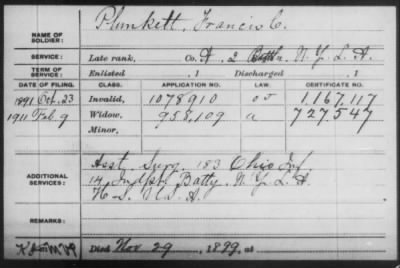 Plunkett, Francis C.
NAME OF SOLDIER:
SERVICE: Late rank, Co. A. 2 Battln. N. Y. L. A.
TERM OF SERVICE: Enlisted , 1 Discharged , 1
DATE OF FILING. CLASS. APPLICATION NO. LAW. CERTIFICATE NO.
1891 Oct. 23 Invalid, 1078910 1,167,117
1911 Feb. 9 Widow, 958,109 a 727,547
Minor,
ADDITIONAL SERVICES:
Asst. Surg. 183 Ohio Inf
14 Indpt. Batty. N. Y. L. A.
H. S. U. S. A.
REMARKS:
Died Nov 29, 1899, at